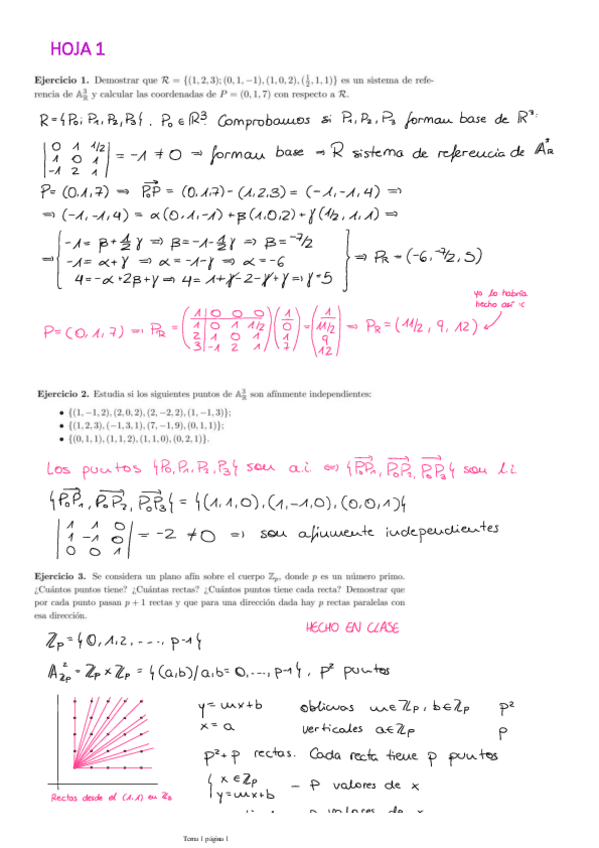 HOJA 1
Ejercicio 1. Demostrar que R = {(1, 2, 3); (0, 1, −1), (1, 0, 2), (1/2, 1, 1)} es un sistema de refe-
rencia de A³_R y calcular las coordenadas de P = (0, 1, 7) con respecto a R.
R = {P₀; P₁, P₂, P₃}. P₀ ∈ R³. Comprobamos si P₁, P₂, P₃ forman base de R³:
| 0 1 1/2 |
| 1 0 1 | = -1 ≠ 0 ⇒ forman base ⇒ R sistema de referencia de A³_R
| -1 2 1 |
P = (0,1,7) ⇒ P₀P = (0,1,7) - (1,2,3) = (-1,-1,4) ⇒
⇒ (-1,-1,4) = α(0,1,-1) + β(1,0,2) + γ(1/2,1,1) ⇒
-1 = β + 1/2 γ ⇒ β = -1 - 1/2 γ ⇒ β = -7/2
⇒ -1 = α + γ ⇒ α = -1 - γ ⇒ α = -6 ⇒ P_R = (-6, -7/2, 5)
4 = -α + 2β + γ ⇒ 4 = 1 + γ - 2 - γ + γ ⇒ γ = 5
yo lo habría
hecho así :<
P = (0,1,7) ⇒ P_R = (1 0 0 0 / 1 0 1 1/2 / 2 1 0 1 / 3 -1 2 1) (1 / 0 / 1 / 7) = (1 / 11/2 / 9 / 12) ⇒ P_R = (11/2, 9, 12)
Ejercicio 2. Estudia si los siguientes puntos de A³_R son afínmente independientes:
• {(1, −1, 2), (2, 0, 2), (2, −2, 2), (1, −1, 3)};
• {(1, 2, 3), (−1, 3, 1), (7, −1, 9), (0, 1, 1)};
• {(0, 1, 1), (1, 1, 2), (1, 1, 0), (0, 2, 1)}.
Los puntos {P₀, P₁, P₂, P₃} son a.i ⇔ {P₀P₁, P₀P₂, P₀P₃} son li
{P₀P₁, P₀P₂, P₀P₃} = {(1,1,0), (1,-1,0), (0,0,1)}
| 1 1 0 |
| 1 -1 0 | = -2 ≠ 0 ⇒ son afinmente independientes
| 0 0 1 |
Ejercicio 3. Se considera un plano afín sobre el cuerpo Z_p, donde p es un número primo.
¿Cuántos puntos tiene? ¿Cuántas rectas? ¿Cuántos puntos tiene cada recta? Demostrar que
por cada punto pasan p + 1 rectas y que para una dirección dada hay p rectas paralelas con
esa dirección.
HECHO EN CLASE
Z_p = {0, 1, 2, ..., p-1}
A²_Zp = Z_p × Z_p = {(a,b) / a,b = 0, ..., p-1}, p² puntos
y = mx + b oblicuas m ∈ Z_p, b ∈ Z_p p²
x = a verticales a ∈ Z_p p
p² + p rectas. Cada recta tiene p puntos
x ∈ Z_p
y = mx + b - p valores de x
Rectas desde el (1,1) en
Tema 1 página 1